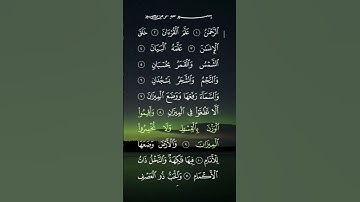 بسم الله الرحمن الرحيم
ٱلرَّحْمَٰنُ ١ عَلَّمَ ٱلْقُرْءَانَ ٢ خَلَقَ
ٱلْإِنسَٰنَ ٣ عَلَّمَهُ ٱلْبَيَانَ ٤
ٱلشَّمْسُ وَٱلْقَمَرُ بِحُسْبَانٍ ٥
وَٱلنَّجْمُ وَٱلشَّجَرُ يَسْجُدَانِ ٦
وَٱلسَّمَآءَ رَفَعَهَا وَوَضَعَ ٱلْمِيزَانَ ٧
أَلَّا تَطْغَوْا۟ فِى ٱلْمِيزَانِ ٨ وَأَقِيمُوا۟
ٱلْوَزْنَ بِٱلْقِسْطِ وَلَا تُخْسِرُوا۟
ٱلْمِيزَانَ ٩ وَٱلْأَرْضَ وَضَعَهَا
لِلْأَنَامِ ١٠ فِيهَا فَٰكِهَةٌ وَٱلنَّخْلُ ذَاتُ
ٱلْأَكْمَامِ ١١ وَٱلْحَبُّ ذُو ٱلْعَصْفِ